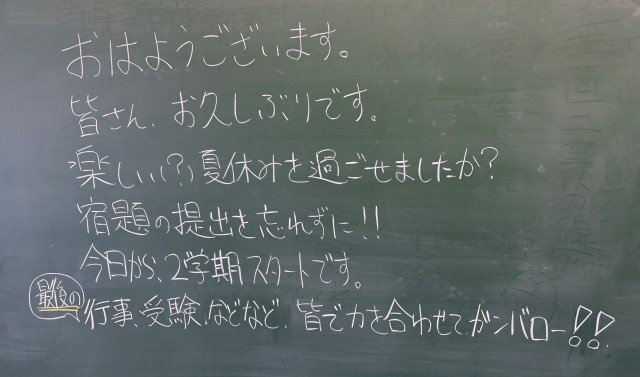 おはようございます。
皆さん、お久しぶりです。
楽しい(?)夏休みを過ごせましたか?
宿題の提出を忘れずに!!
今日から、2学期スタートです。
最後の
行事、受験、などなど、皆で力を合わせてガンバロー!!